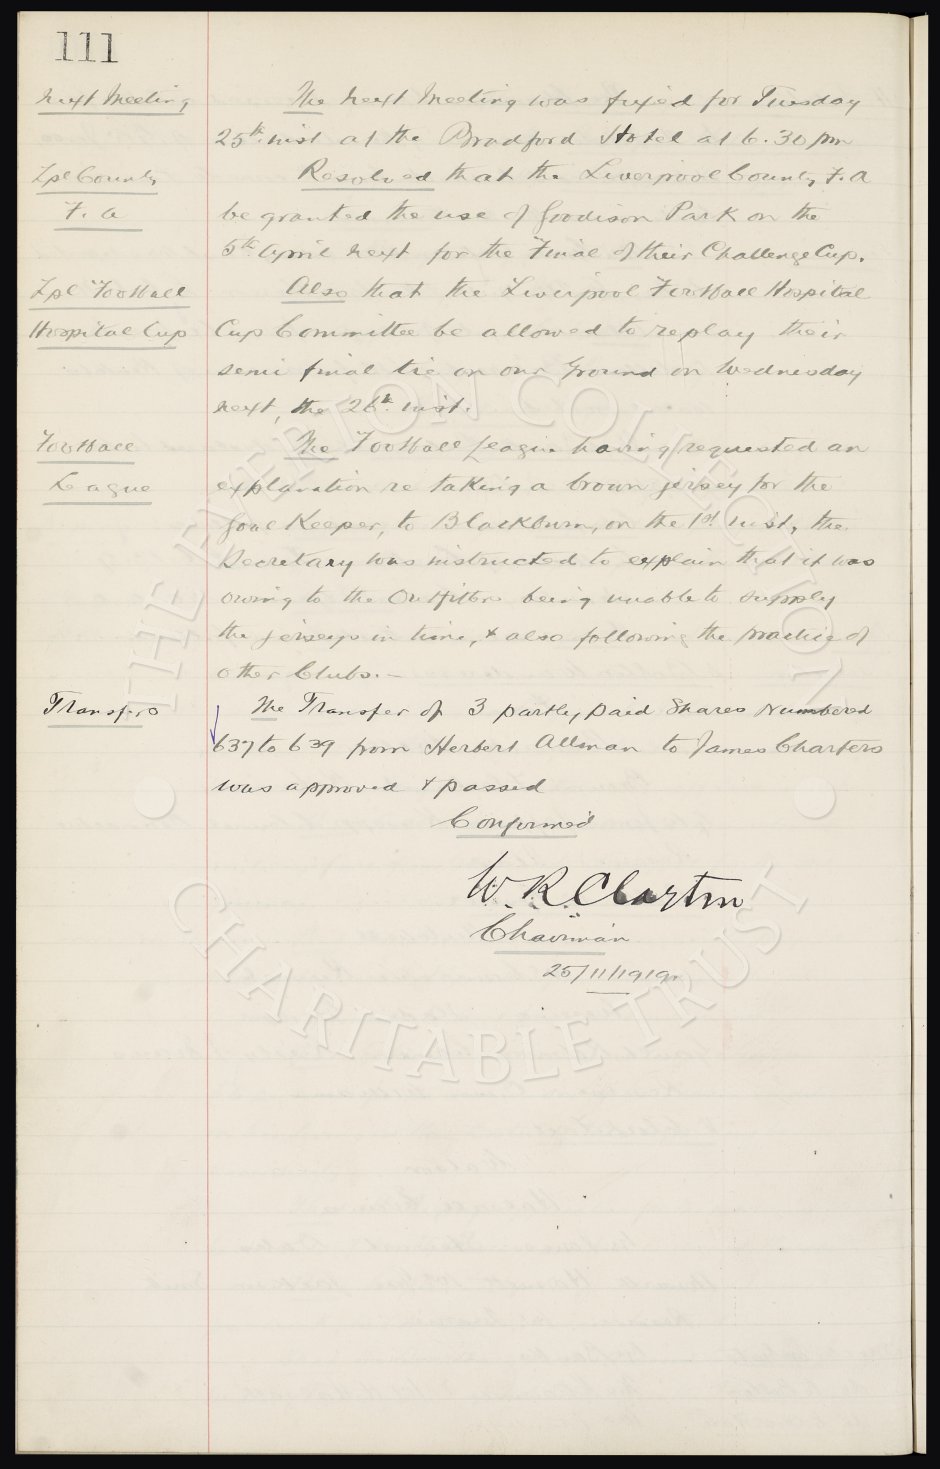 111
Next Meeting
The Next Meeting was fixed for Tuesday
25th inst at the Bradford Hotel at 6.30 pm
Lpl County
F. A
Resolved that the Liverpool County F. A
be granted the use of Goodison Park on the
5th April next for the Final of their Challenge Cup.
Lpl Football
Hospital Cup
Also that the Liverpool Football Hospital
Cup Committee be allowed to replay their
semi final tie on our Ground on Wednesday
next, the 26th inst.
Football
League
The Football League having requested an
explanation re taking a brown jersey for the
Goal Keeper, to Blackburn, on the 1st inst, the
Secretary was instructed to explain that it was
owing to the Outfitters being unable to supply
the jerseys in time, & also following the practice of
other Clubs.-
Transfers
The Transfer of 3 partly paid Shares Numbered
637 to 639 from Herbert Allman to James Charters
was approved & passed
Confirmed
W. R. Clayton
Chairman
25/11/1919
THE EVERTON COLLECTION
CHARITABLE TRUST